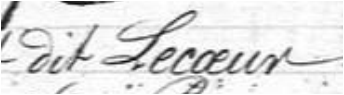 dit Lecœur